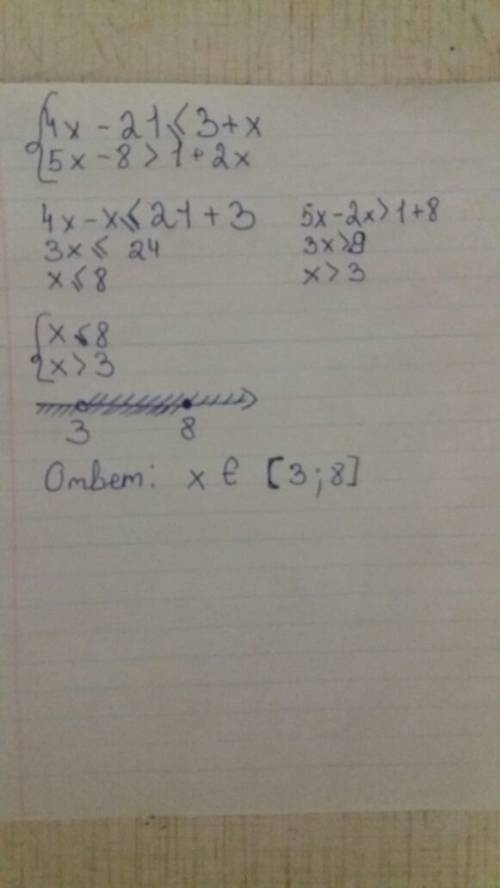 {4x - 21 ⩽ 3 + x
{5x - 8 > 1 + 2x
4x - x ⩽ 21 + 3 5x - 2x > 1 + 8
3x ⩽ 24 3x > 9
x ⩽ 8 x > 3
{x ⩽ 8
{x > 3
3 8
Ответ: x ∈ [3; 8]